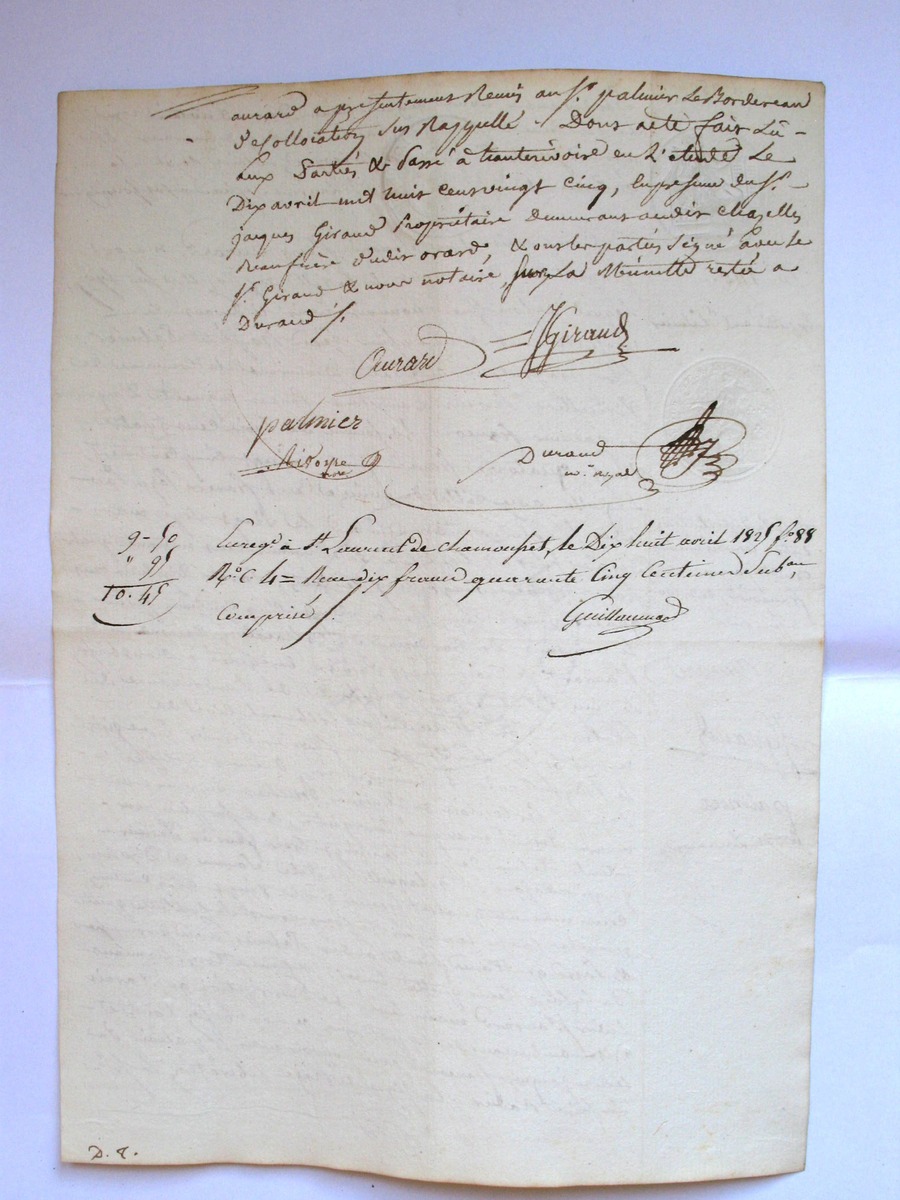 aurard a présentement Remis au Sr. palmier Le Bordereau
de Collocation sus Rappellé. Dont acte fait Lu
aux Parties & Passé à hauterivoire en L'étude Le
Dix avril mil huit cent vingt cinq, En présence du Sr.
jacques Giraud Propriétaire demeurant audit Chazelles
Beaufrère dudit orard, & ont les parties Signé avec le
Sr. Giraud & nous notaire, sur La Minutte restée a
Durand /.
Aurard
JGiraud
palmier
Durand
nre. royal
9-50
" 95
10.45
Enregé. à St. Laurent de chamousset, le Dix huit avril 1825 fo. 88
Ro. C 4 = Reçu dix francs quarante Cinq Centimes Subon
Comprise
Guillaumod
D. T.